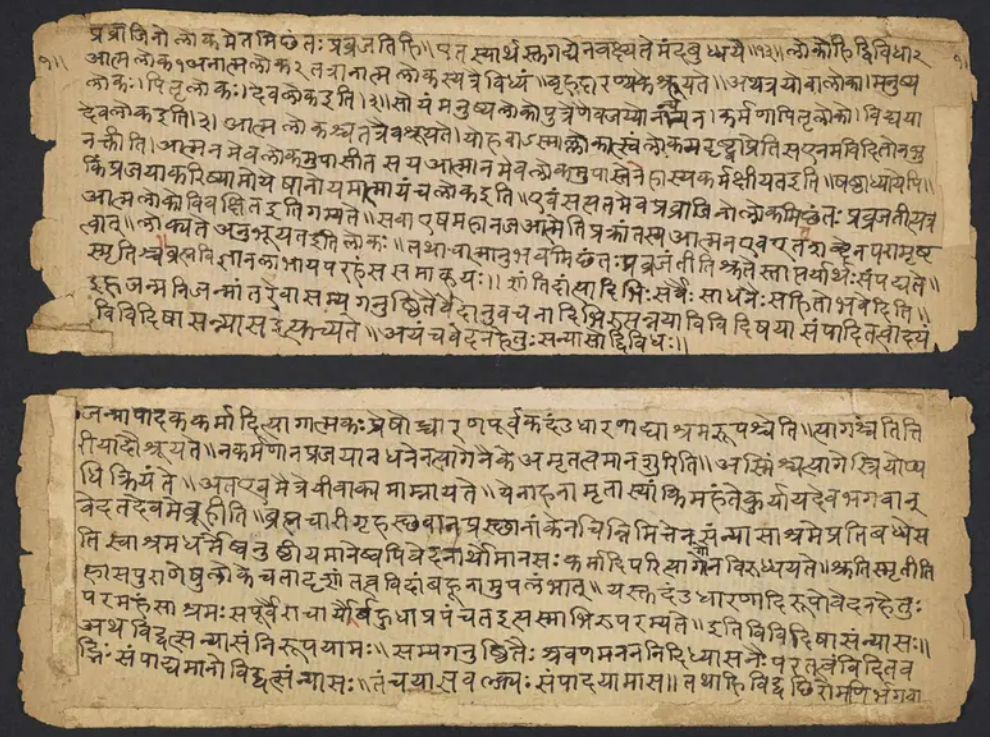 प्रव्राजिनो लोकमेतमिछंतः प्रव्रजंतिहि॥ एतस्यार्थस्तुगद्येनवक्ष्यते मंदबुध्यये॥१३॥ लोकोहिद्विविधार
१॥ आत्मलोक१अनात्मलोकर तत्रानात्मलोकस्यत्रैविध्यं॥ बृहदारण्यके श्रूयते॥ अथत्रयोवालोका।मनुष्य
लोकः। पितृलोकः। देवलोकइति।३॥ सोयंमनुष्यलोको पुत्रेणैवजय्योनान्येन। कर्मणापितृलोको। विद्यया
देवलोकइति।२। आत्मलोकश्चतत्रैवश्रूयते। योहवाऽस्माल्लोकात्स्वंलोकमदृष्ट्वाप्रेतिसएनमविदितोनभु
नक्तीति। आत्मनमेवलोकमुपासीत स य आत्मानमेवलोकमुपास्तेनेहास्यकर्मक्षीयतइति॥ षष्ठाध्यायेपि॥
किंप्रजयाकरिष्यामोये षानोयमात्मायंचलोकइति॥ एवंसत्सतमेवप्रव्राजिनोलोकमिछंतः प्रव्रजंतीत्यत्र
आत्मलोकोविवक्षितइतिगम्यते॥ सवाएषमहानजआत्मेतिप्रक्रांतस्य आत्मनएवएतंशब्देनपरामृष्ट
त्वात्॥ लोक्यते अनुभूयतइति लोकः॥ तथाचात्मानुभवमिछंतः प्रव्रजंतीतिश्रुतेस्तात्पर्यार्थःसंपद्यते॥
स्मृतिश्च ब्रह्मविज्ञानलाभायपरहंससमाव्हयः।। शांतिदांत्यादिभिः सर्वैः साधनैः सहितोभवेदिति॥
इहजन्मनिजन्मांतरेवासम्यगनुष्ठितैर्वेदानुवचनादिभिरुत्पन्नयाविविदिषयासंपादितत्वादयं
विविदिषासन्यासइत्युच्यते॥ अयंचवेदनहेतुः सन्यासोद्विविधः।।
जन्मापादककर्मादित्यागात्मकः प्रेषोच्चारणपूर्वकदंडधारणाद्याश्रमरूपश्चेति॥ त्यागश्चतित्ति
रीयादौश्रूयते॥ नकर्मणानप्रजयानधनेनत्यागेनैके अमृतत्वमानशुरिति॥ अस्मिंश्चत्यागेस्त्रियोप्य
धिक्रियंते॥ अतएवमैत्रेयीवाक्यमाम्नायते॥ येनाहंनामृतास्यांकिमहंतेकुर्यांयदेवभगवान्
वेदतदेवमेब्रूहीति॥ ब्रह्मचारीगृहस्थवानप्रस्थानांकेनचिन्निमित्तेनसंन्यासाश्रमेप्रतिबध्येस
तिस्वाश्रमधर्मेष्वनुष्ठीयमानेष्वपिवेदनार्थोमानसः कर्मादिपरित्यागोनविरुध्ध्यते॥ श्रुतिस्मृतीति
हासपुराणेषुलोकेचतादृशांतत्वविदांबहूनामुपलंभात्॥ यस्तुदंडधारणादिरूपोवेदनहेतुः
परमहंसाश्रमः सपूर्वैराचार्यैर्बहुधाप्रपंचितइत्यस्माभिरुपरम्यते॥ इतिविविदिषासंन्यासः॥
अथ विद्वत्सन्यासंनिरूपयामः॥ सम्यगनुष्ठितैः श्रवणमनननिदिध्यासनैः परतत्वंविदितव
द्भिः संपाद्यमानोविद्वत्संन्यासः॥ तंचयाज्ञवल्क्यः संपादयामास॥ तथाहिविद्वच्छिरोमणिर्भगवा